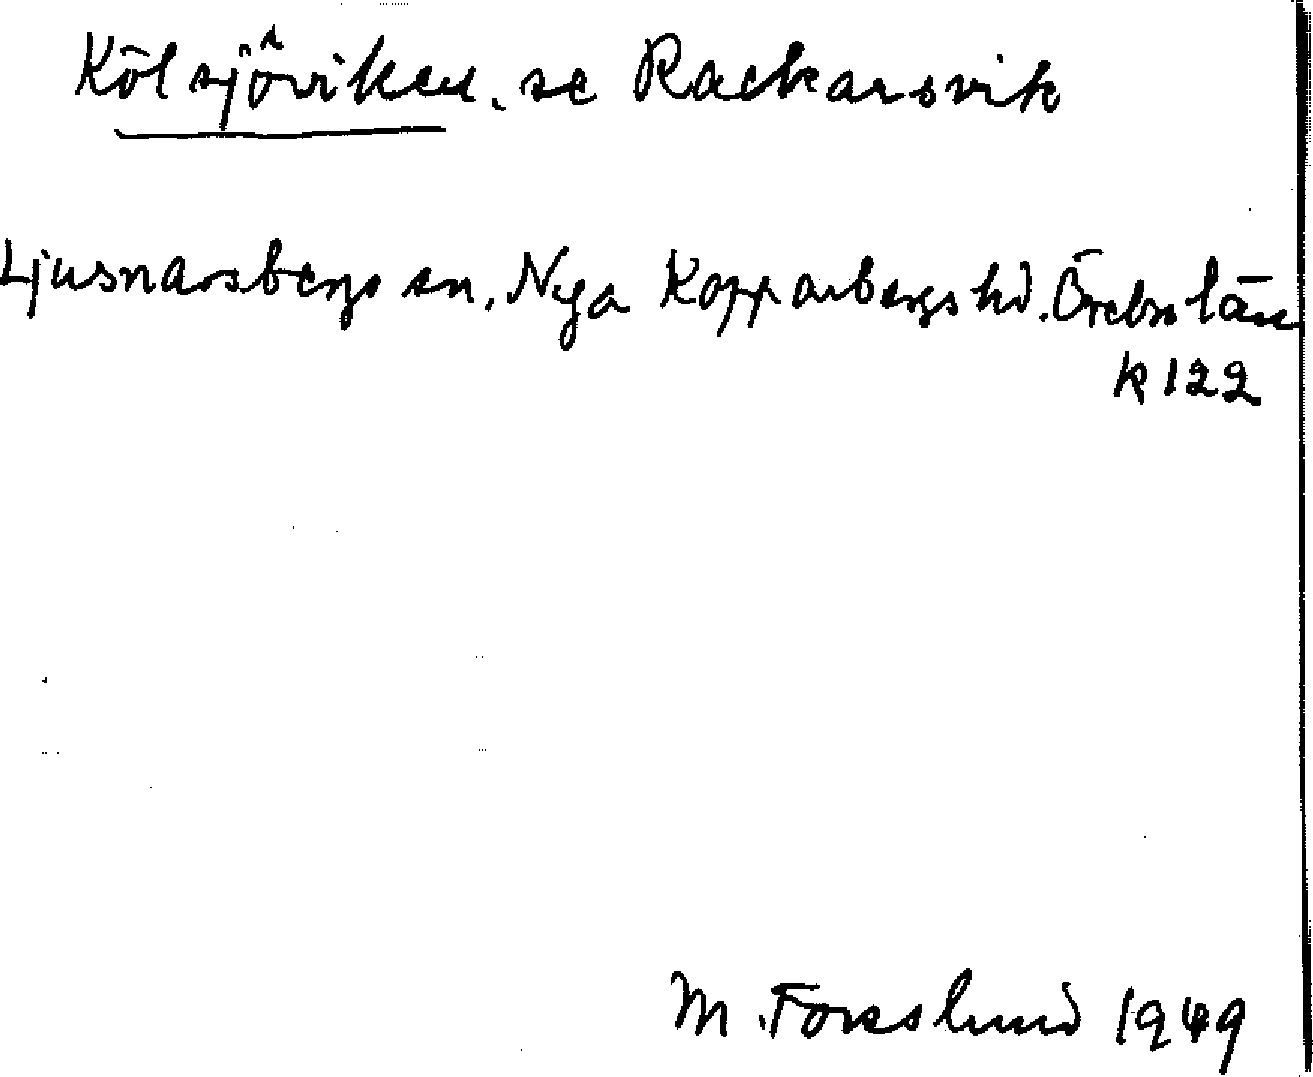 Kölsjöviken, se Rackarsvik
Ljusnarsbergs sn, Nya Kopparbergs hd. Örebro län
k 122
M. Forsslund 1949